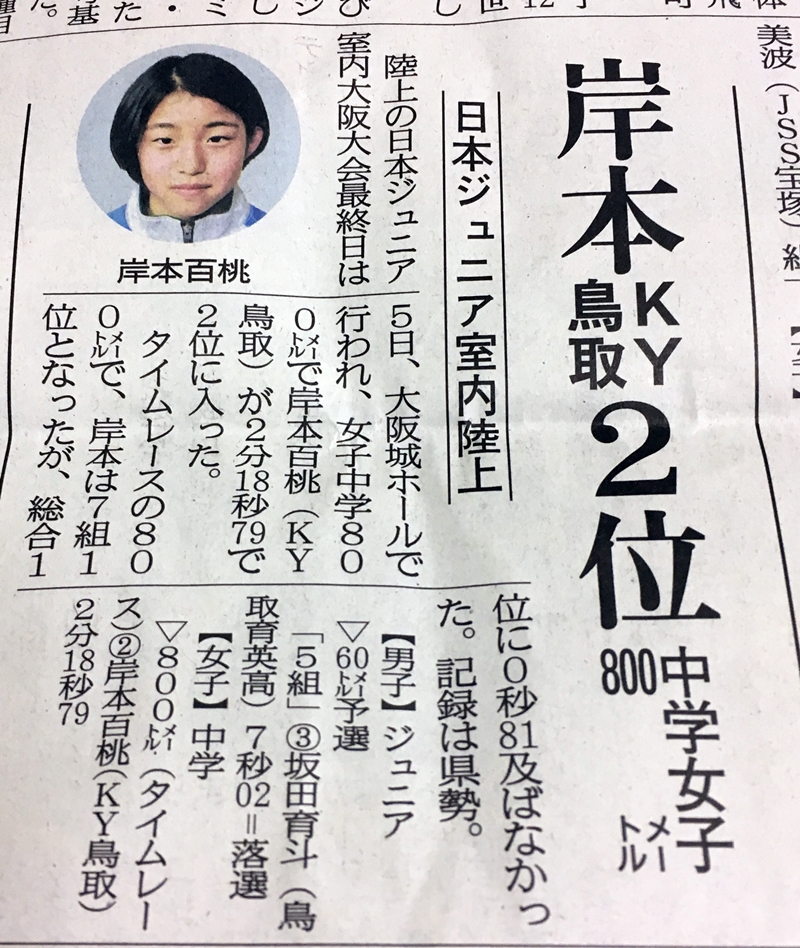 岸本KY鳥取2位
中学女子800メートル
日本ジュニア室内陸上
岸本百桃
陸上の日本ジュニア
室内大阪大会最終日は
5日、大阪城ホールで
行われ、女子中学80
0メートルで岸本百桃(KY
鳥取)が2分18秒79で
2位に入った。
タイムレースの80
0メートルで、岸本は7組1
位となったが、総合1
位に0秒81及ばなかっ
た。記録は県勢。
【男子】ジュニア
▽60メートル予選
「5組」③坂田育斗(鳥
取育英高)7秒02=落選
【女子】中学
▽800メートル(タイムレー
ス)②岸本百桃(KY鳥取)
2分18秒79
美波(JSS宝塚)組